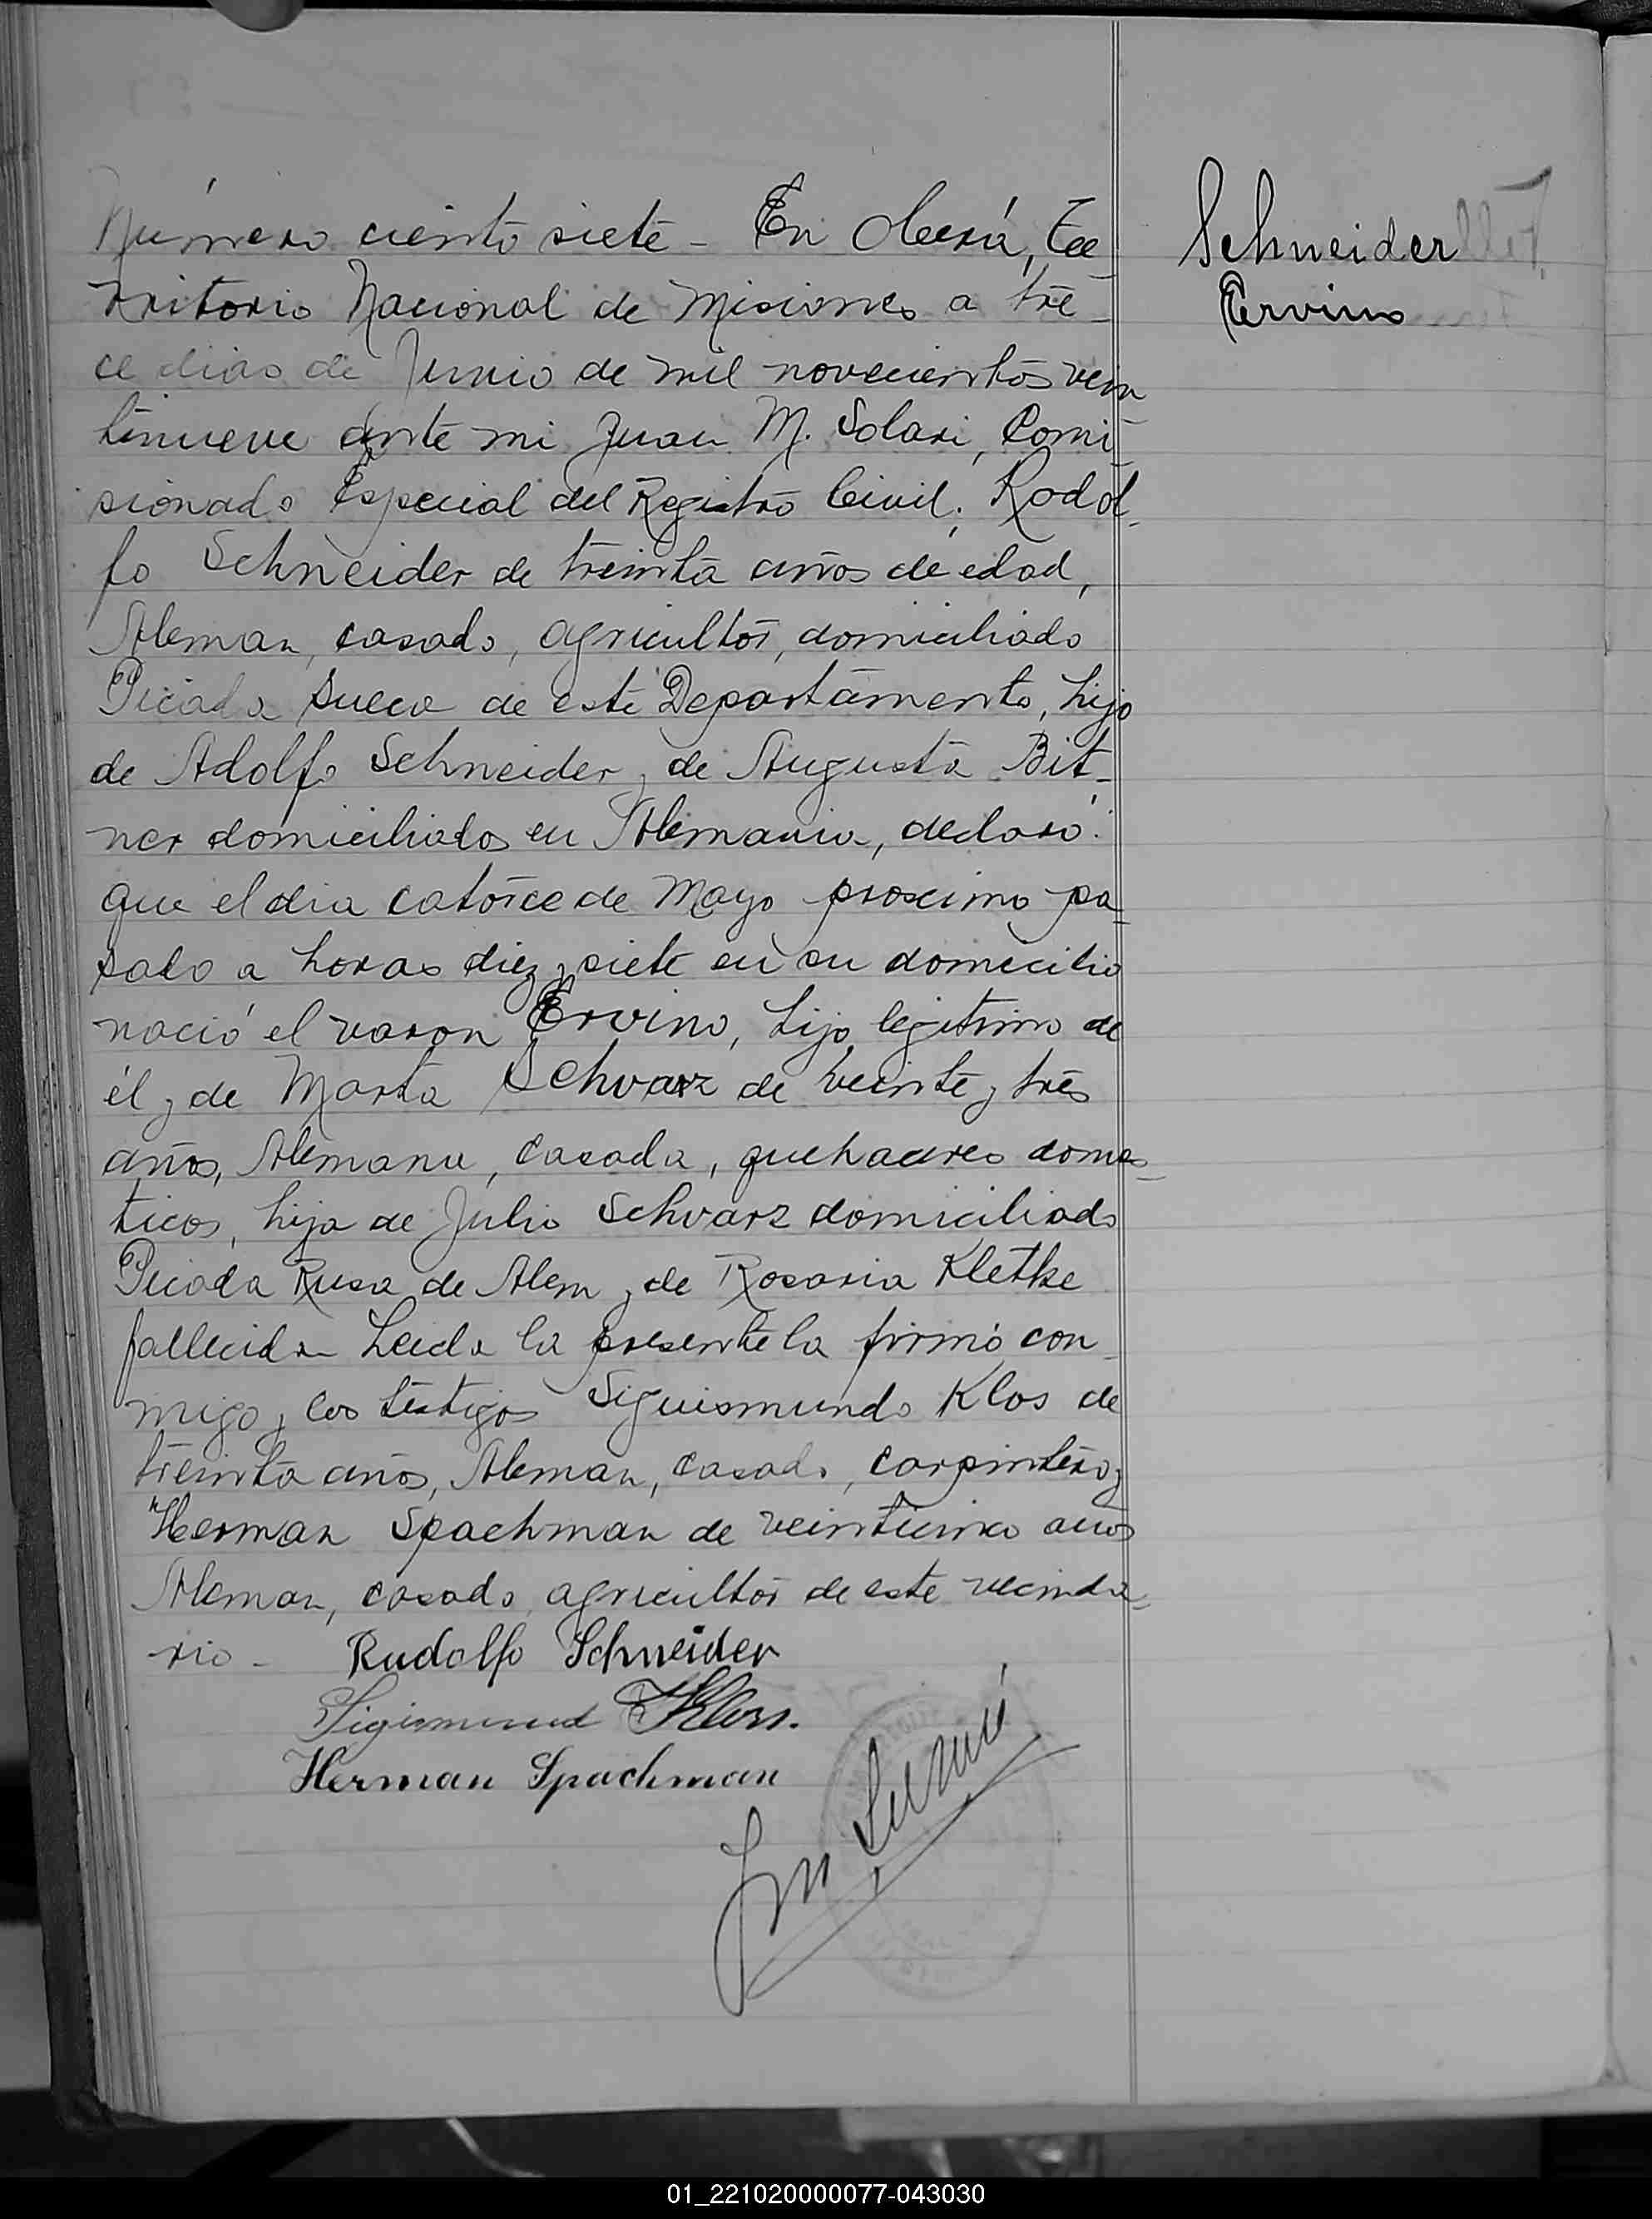 Schneider
Ervino
Número ciento siete - En Oberá, Te-
rritorio Nacional de Misiones a tre-
ce dias de Junio de mil novecientos vein
tinueve ante mi Juan M. Solari, Comi-
sionado Especial del Registro Civil; Rodol-
fo Schneider de treinta años de edad,
Aleman, casado, agricultor, domiciliado
Picada Sueca de este Departamento, hijo
de Adolfo Schneider y de Augusta Bit-
ner domiciliados en Alemania, declaró:
que el dia catorce de Mayo proximo pa-
sado a horas diez y siete en su domicilio
nació el varon Ervino, hijo legitimo de
él y de Marta Schvarz de veinte y tres
años, Alemana, casada, quehaceres domes-
ticos, hija de Julio Schvarz domiciliado
Picada Rusa de Alem y de Rosaria Kletke
fallecida - Leida la presente la firmó con-
migo y los testigos Siguismundo Klos de
treinta años, Aleman, casado, carpintero y
Herman Spachman de veinticinco años
Aleman, casado, agricultor de este vecinda-
rio - Rudolfo Schneider
Sigismund Klos.
Herman Spachman
01_221020000077-043030